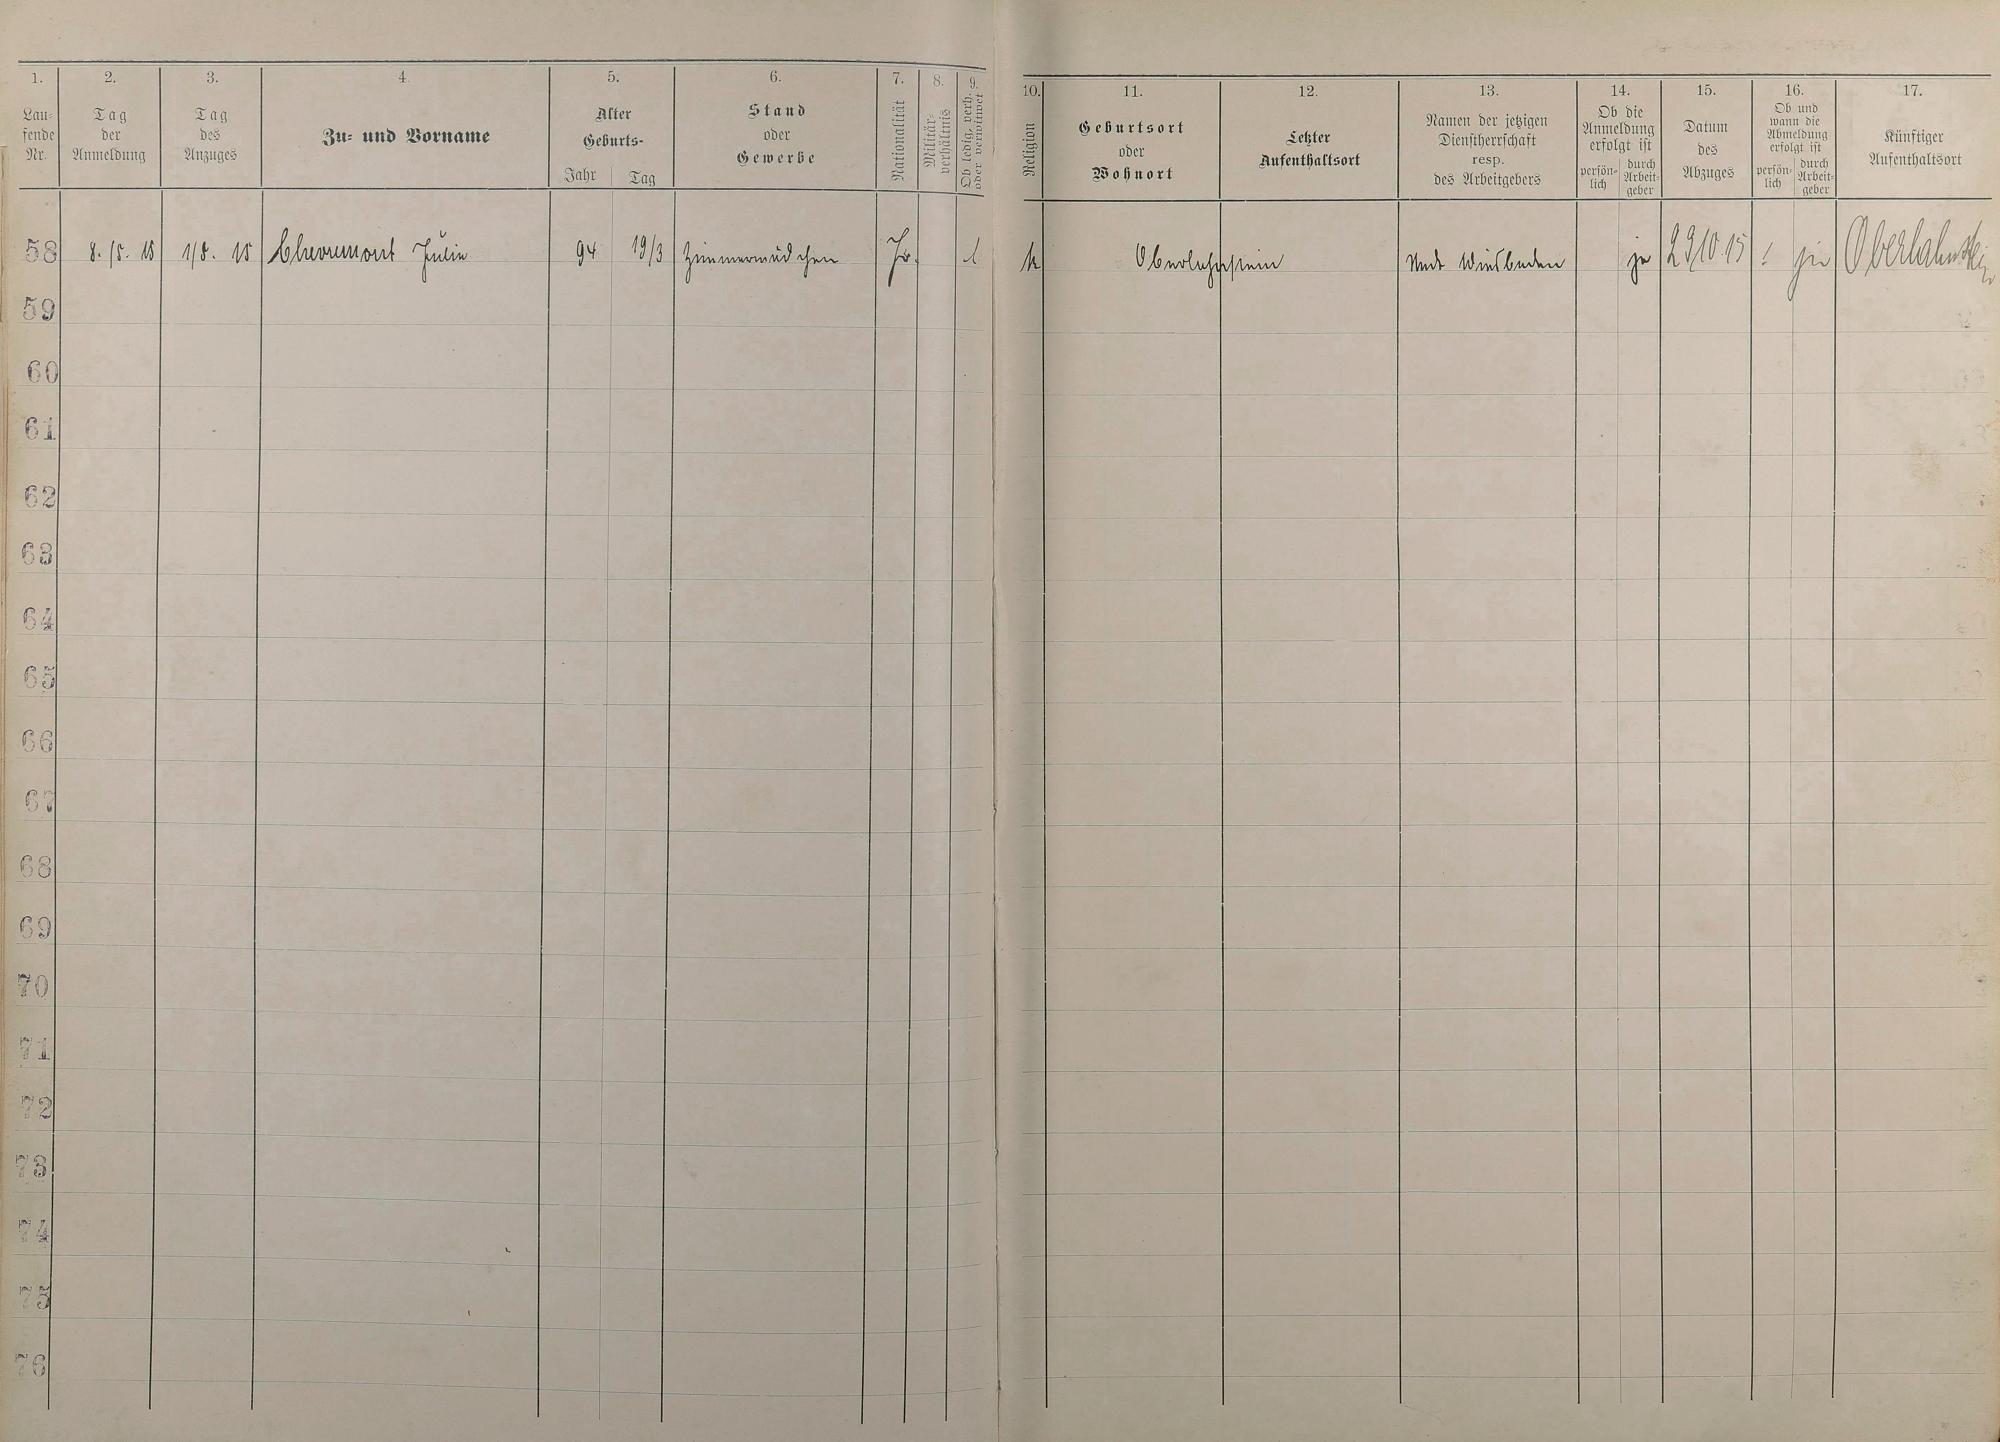 1. 2. 3. 4. 5. 6. 7. 8. 9. 10. 11. 12. 13. 14. 15. 16. 17.
Lau-
fende
Nr.
Tag
der
Anmeldung
Tag
des
Anzuges
Zu- und Vorname
Alter
Geburts-
Jahr Tag
Stand
oder
Gewerbe
Nationalität
Militär-
verhältnis
Ob ledig, verh.
oder verwitwet
Religion
Geburtsort
oder
Wohnort
Letzter
Aufenthaltsort
Namen der jetzigen
Dienstherrschaft
resp.
des Arbeitgebers
Ob die
Anmeldung
erfolgt ist
persön-
lich
durch
Arbeit-
geber
Datum
des
Abzuges
Ob und
wann die
Abmeldung
erfolgt ist
persön-
lich
durch
Arbeit-
geber
Künftiger
Aufenthaltsort
58 8. /5. 15 1/5. 15 Chevremont Julie 94 19/3 Zimmermädchen Pr. l k Oberlahnstein Wiesbaden ja 29/10 15 Oberlahnstein
59
60
61
62
63
64
65
66
67
68
69
70
71
72
73
74
75
76